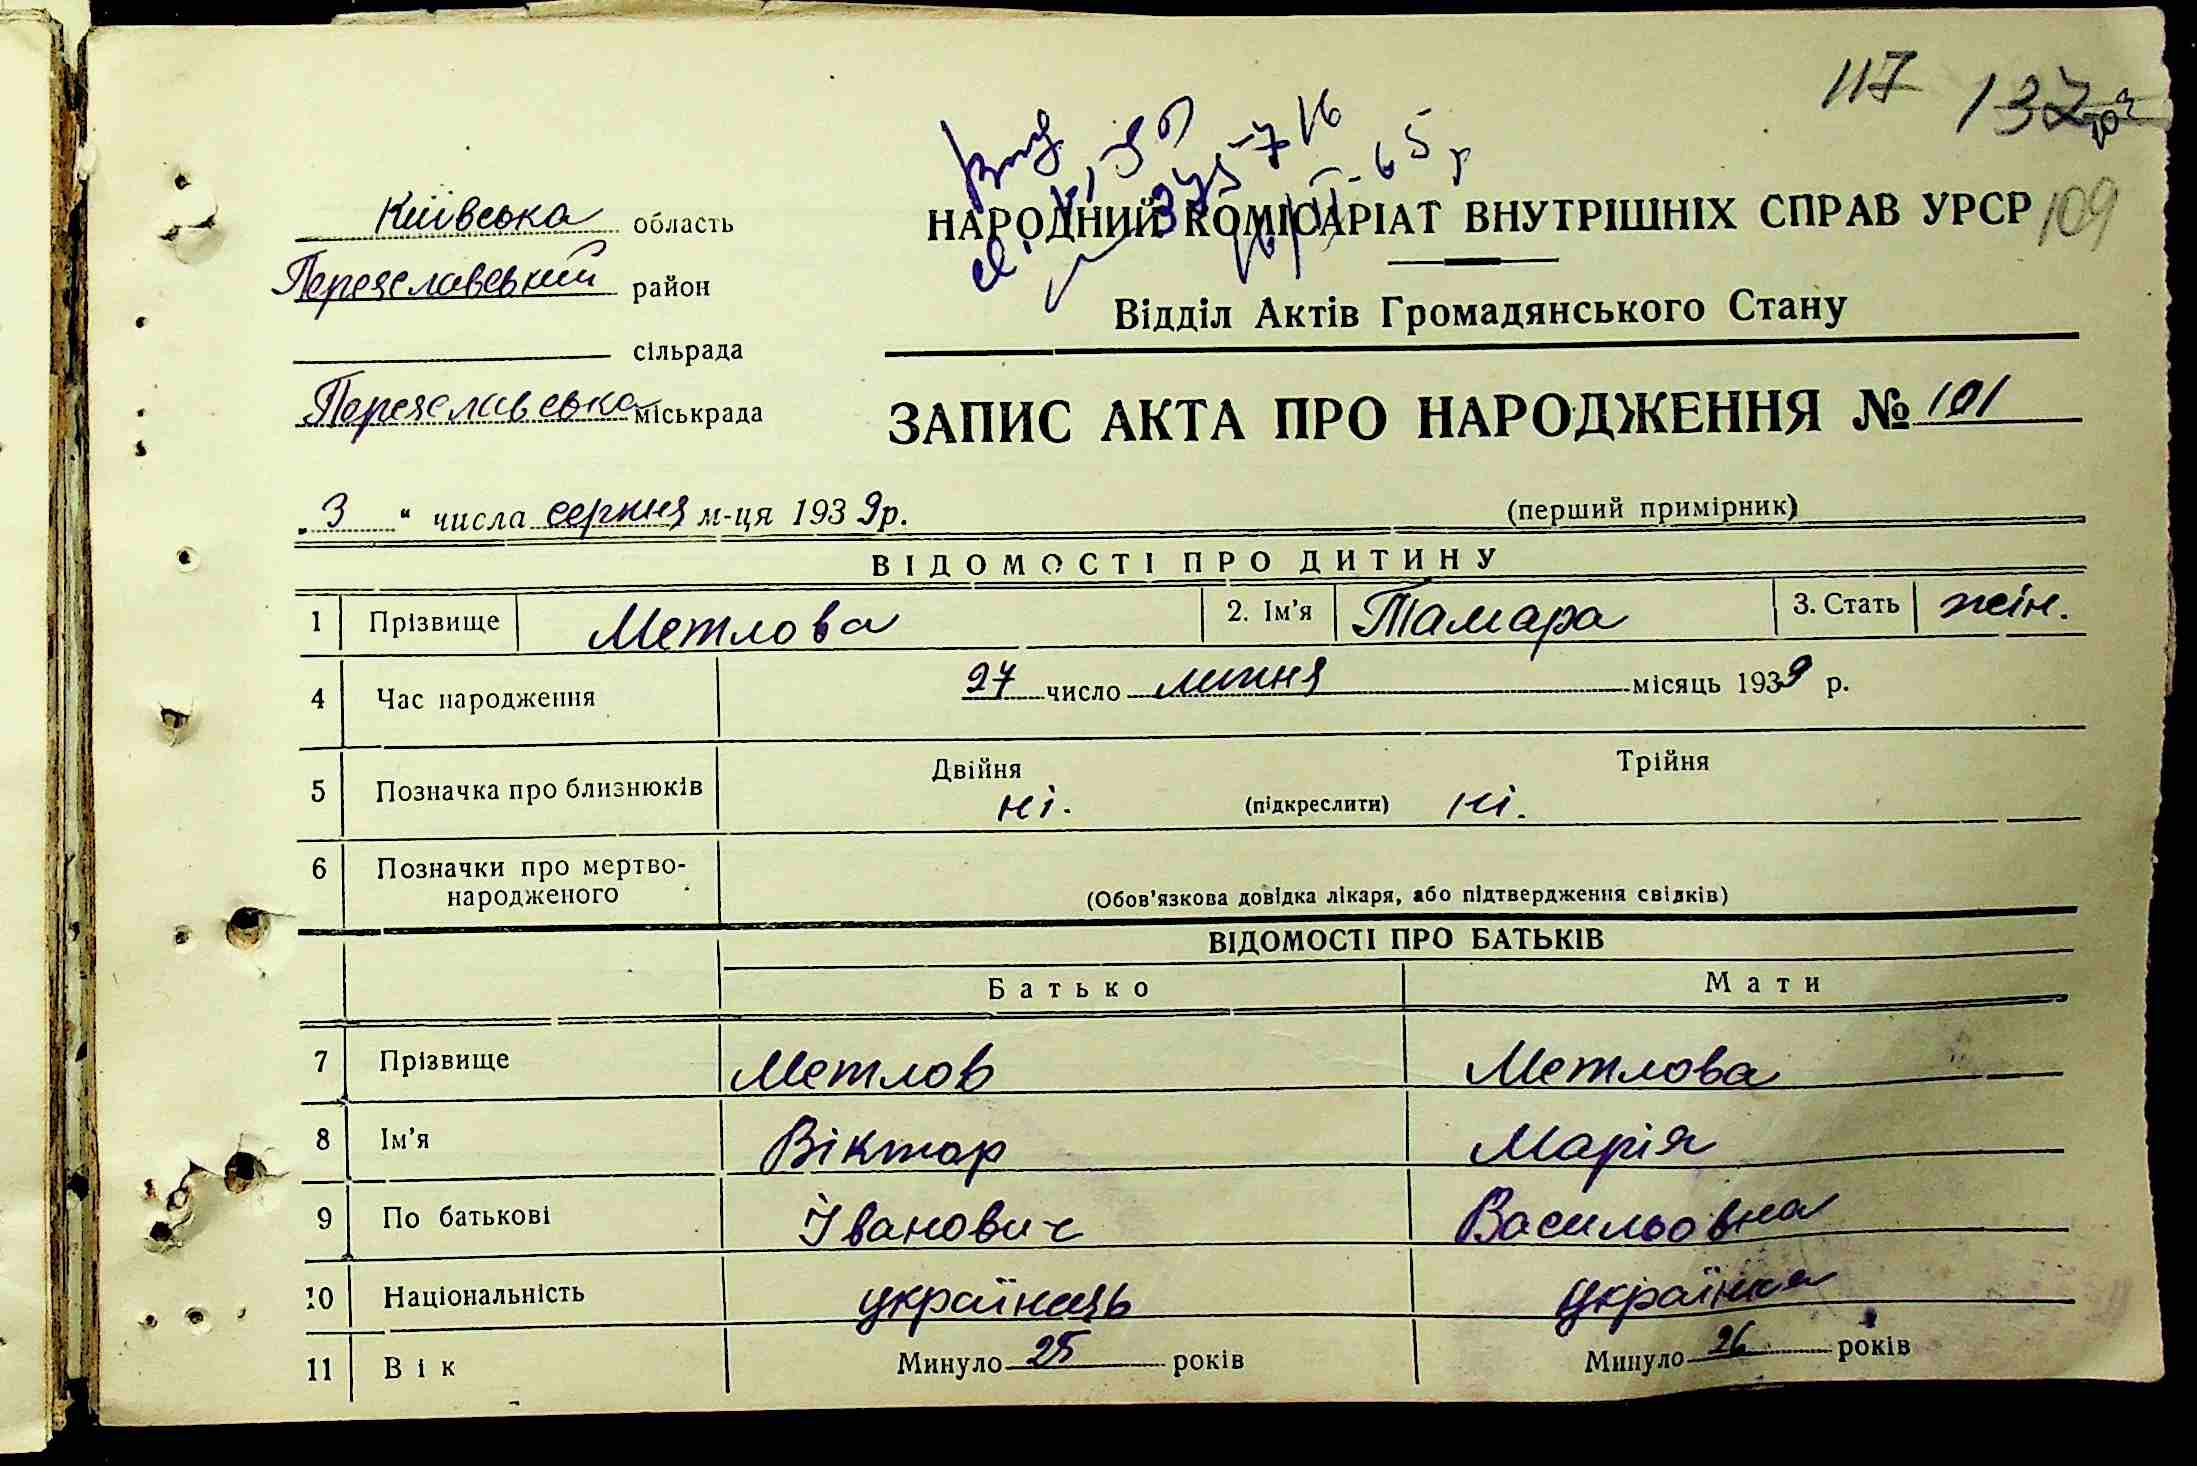 117 137
Київська область
НАРОДНИЙ КОМІСАРІАТ ВНУТРІШНІХ СПРАВ УРСР 109
Переяславський район
Відділ Актів Громадянського Стану
сільрада
Переяславська міськрада
ЗАПИС АКТА ПРО НАРОДЖЕННЯ № 101
„3" числа серпня м-ця 1939 р.
(перший примірник)
ВІДОМОСТІ ПРО ДИТИНУ
1 Прізвище Метлова 2. Ім'я Тамара 3. Стать жін.
4 Час народження 27 число липня місяць 1939 р.
Двійня Трійня
5 Позначка про близнюків ні. (підкреслити) ні.
6 Позначки про мертво-
народженого (Обов'язкова довідка лікаря, або підтвердження свідків)
ВІДОМОСТІ ПРО БАТЬКІВ
Батько Мати
7 Прізвище Метлов Метлова
8 Ім'я Віктор Марія
9 По батькові Іванович Васильовна
10 Національність українець українка
11 Вік Минуло 25 років Минуло 26 років